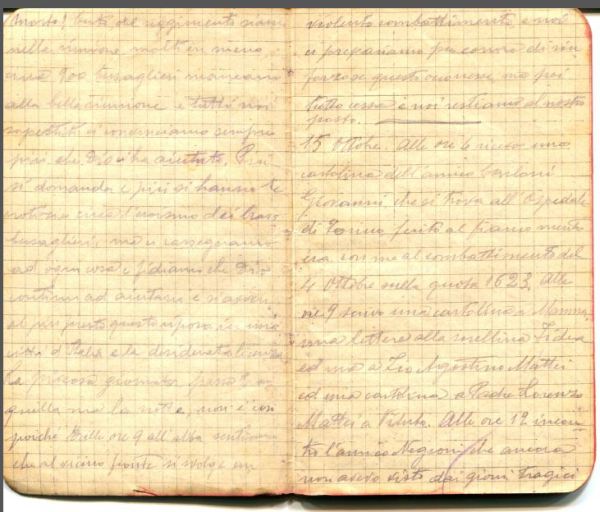 tutti del reggimento siamo
nella riunione molti in meno,
900 bersaglieri mancano
alla bella riunione e tutti noi
superstiti ci convinciamo sempre
più che Dio ci ha aiutato. Più
si domanda e più si hanno le
notizie circa l'eroismo dei bravi
bersaglieri, ma ci rassegniamo
ad ogni cosa e fidiamo che Dio
continui ad aiutarci e
al più presto questo riposo in una
città d'Italia e la desiderata licenza.
La piovosa giornata passò
quella ma la notte, non è così
poiché dalle ore 9 all'alba sentiamo
che al vicino fronte si svolge un
violento combattimento e noi
ci prepariamo per correre di rin
forzo se questo occorresse, ma poi
tutto cessa e noi restiamo al nostro
posto.
15 Ottobre. Alle ore 6 ricevo una
cartolina dell'amico
Giovanni che si trova all'Ospedale
di ferito al fianco mentre
era con me al combattimento del
4 Ottobre sulla quota 1623. Alle
ore 9 scrivo una cartolina a Mamma,
una lettera alla sorellina
ed una a Zio Agostino Mattei
ed una cartolina a Padre Lorenzo
Mattei a Viterbo. Alle ore 12 incon
tro l'amico Negroni che ancora
non avevo visto dai giorni tragici